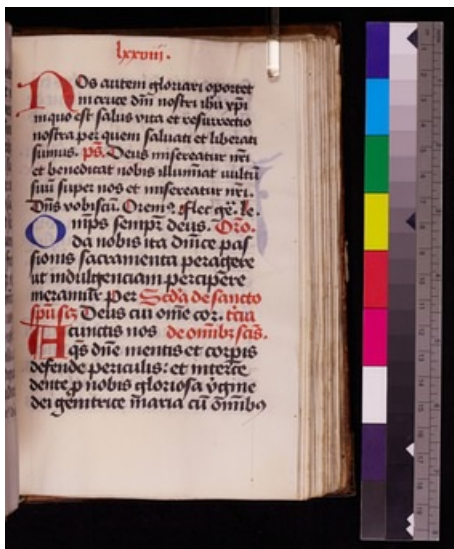 lxxviii.
Nos autem gloriari oportet
in cruce dñi nostri ihu xp̄i
in quo est salus vita et resurrectio
nostra per quem saluati et liberati
sumus. ps. Deus misereatur nr̄i
et benedicat nobis illuminat uultū
suū super nos et misereatur nr̄i.
Dñs vobiscū. Oremꝰ. Flec gē. le.
Omps semp̄r deus. Oro.
da nobis ita dn̄ice pas
sionis sacramenta peragere
ut indulgenciam percipere
meramur per Scd̄a de sancto
sp̄u scz Deus cui om̄e cor. t̄cia
A cunctis nos de om̄ibꝫ scīs.
q̄s dn̄e mentis et corp̄is
defende periculis: et int̄ce
dente p nobis gloriosa v̄gine
dei genitrice maria cū om̄ibꝰ